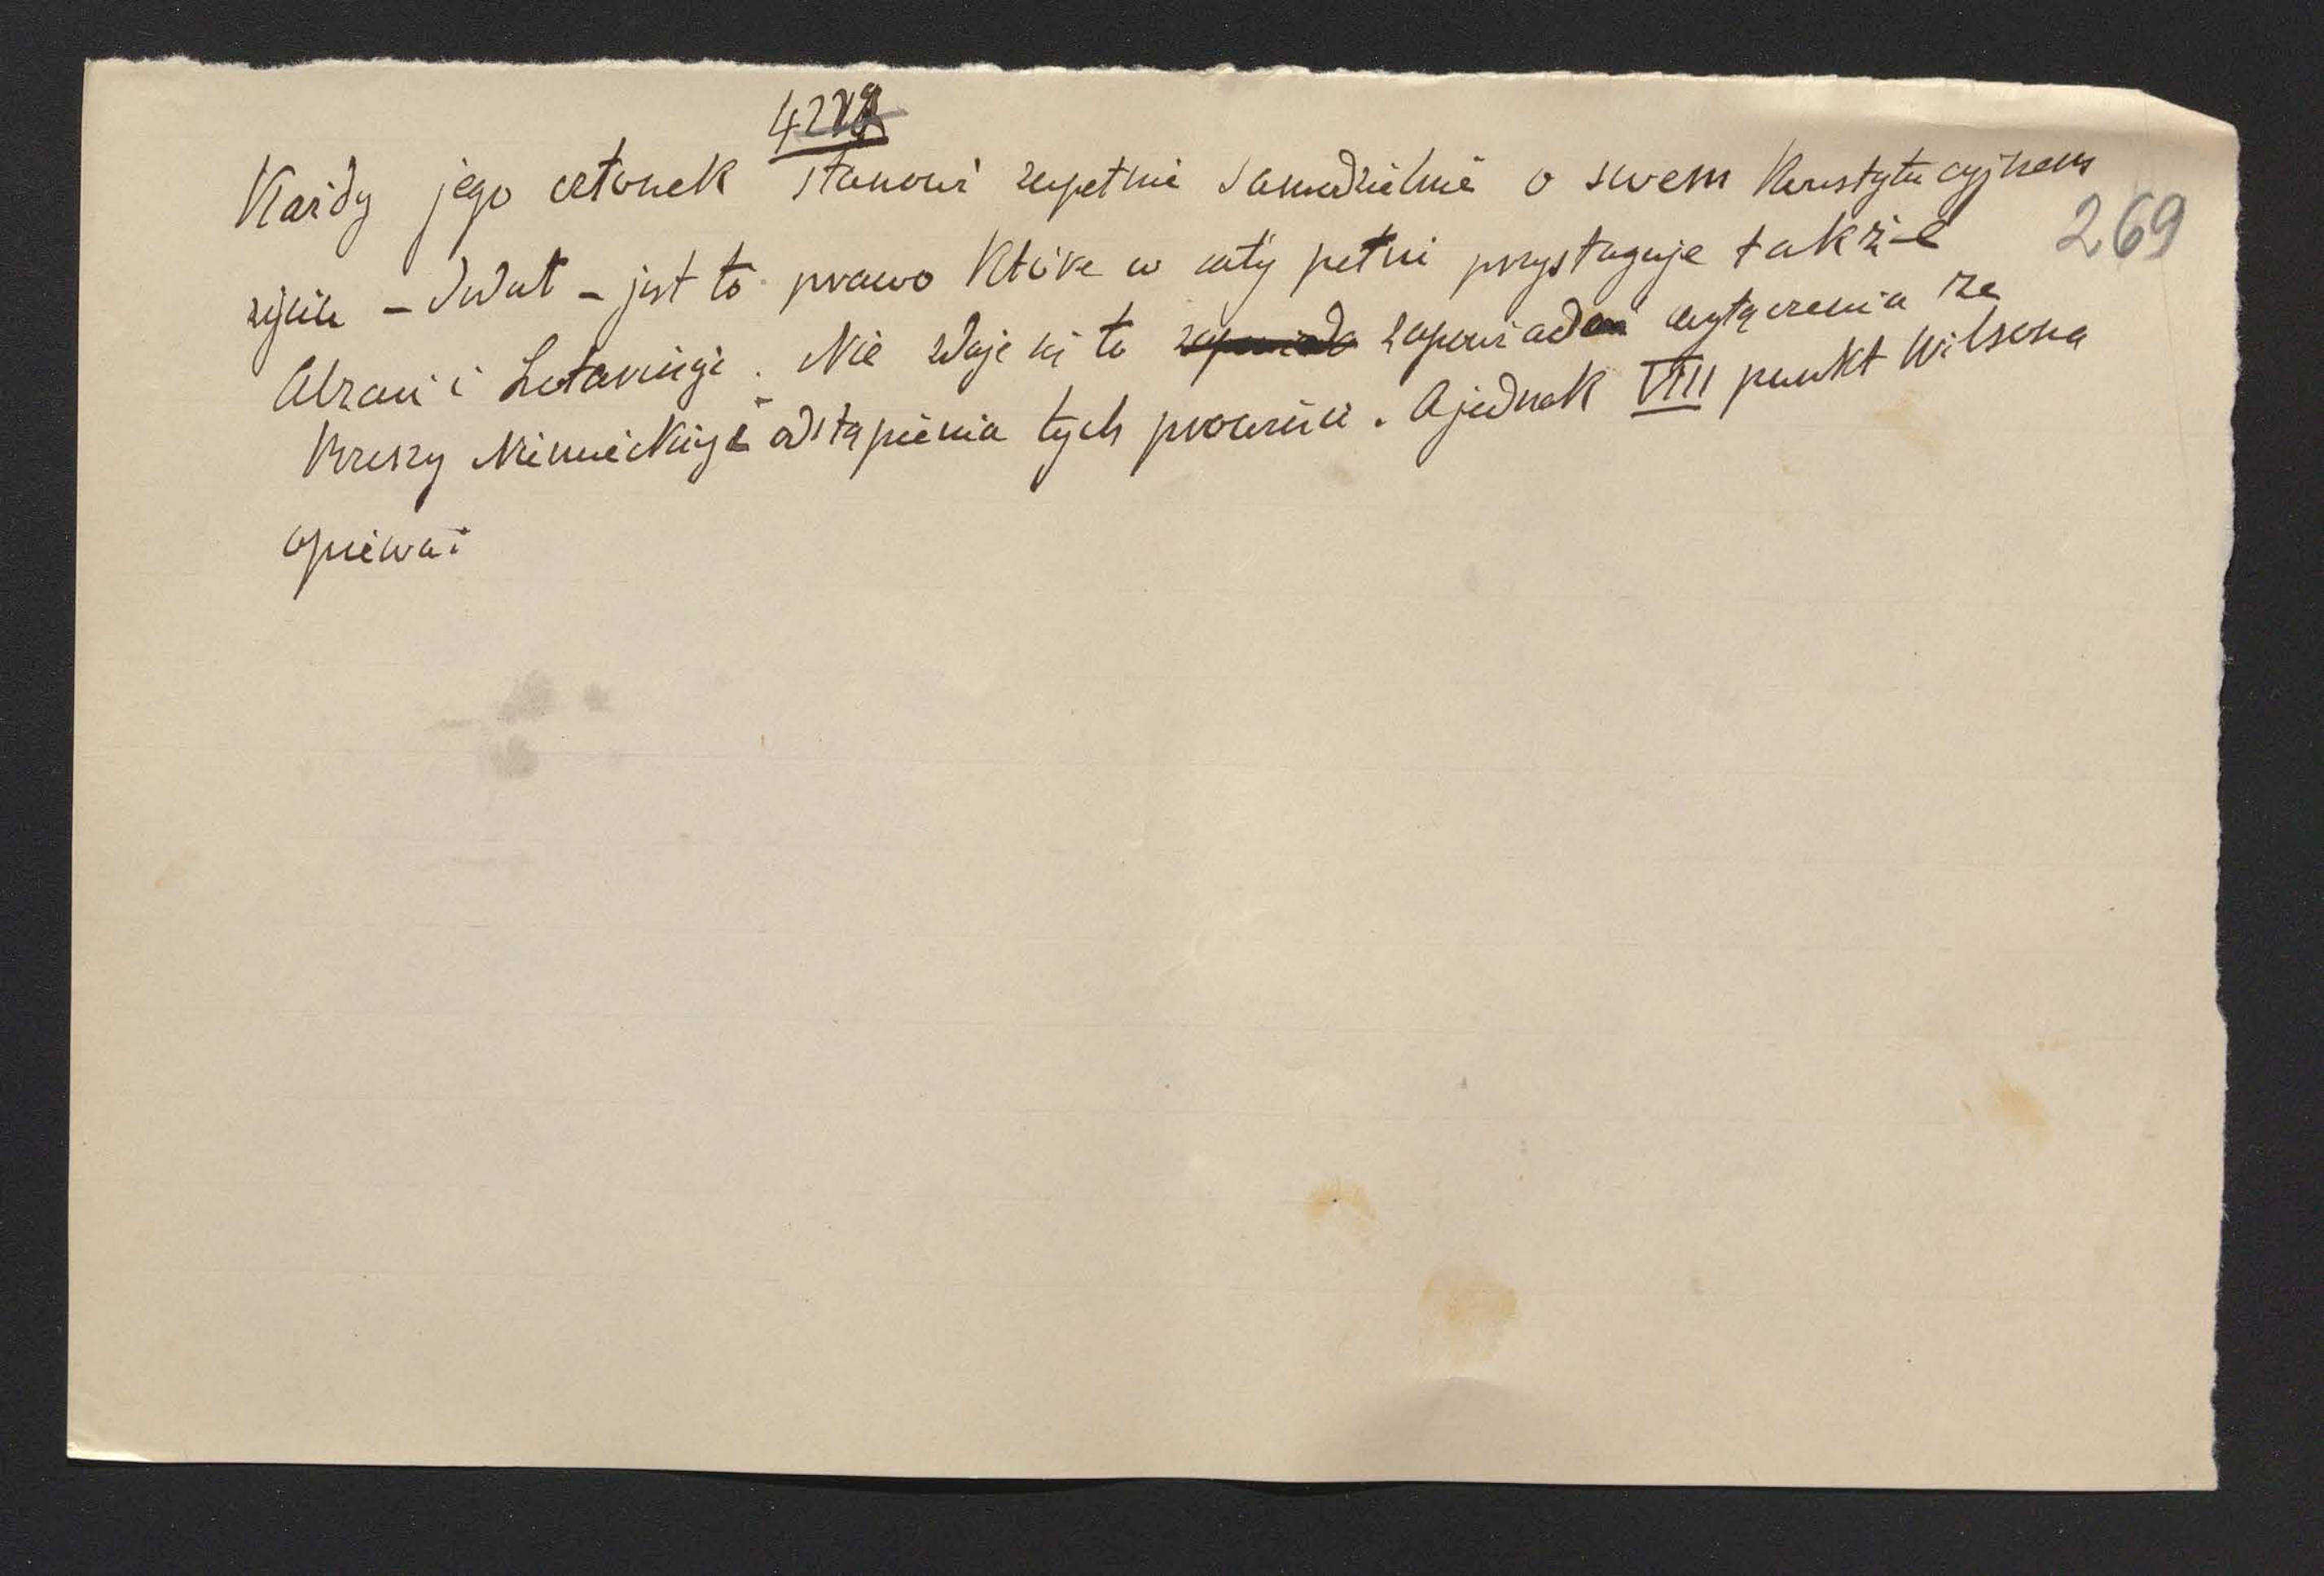 Każdy jego członek stanowi zupełnie samodzielnie o swem konstytucyjnem
269
życiu – dodał – jest to prawo które w całej pełni przysługuje także
Alzacji i Lotaryngji. Nie zdaje się to zapowiadać wyłączenia ze
Rzeszy Niemieckiej i odstąpienia tych prowincji. A jednak VIII punkt Wilsona
opiewa: